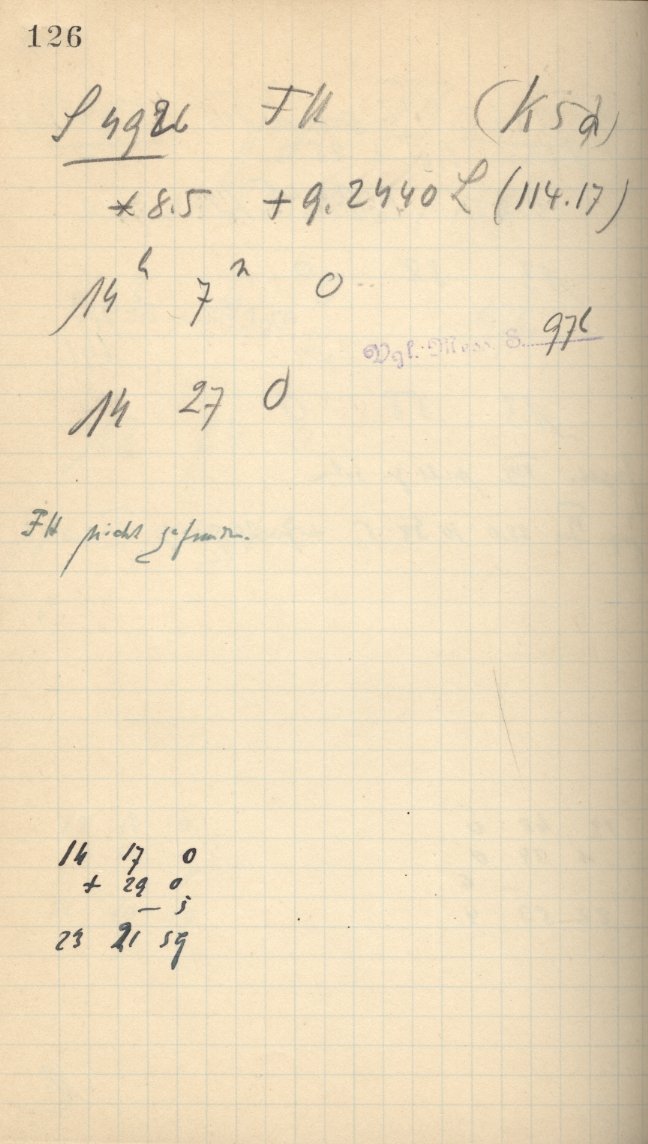 126
S 4926 FH (K5d)
* 8.5 + 9.2440 L (114.17)
14h 7m 0
Vgl. Mess S. 976
14 27 0
FH nicht gefunden.
14 17 0
+ 29 0
- 5
23 21 59